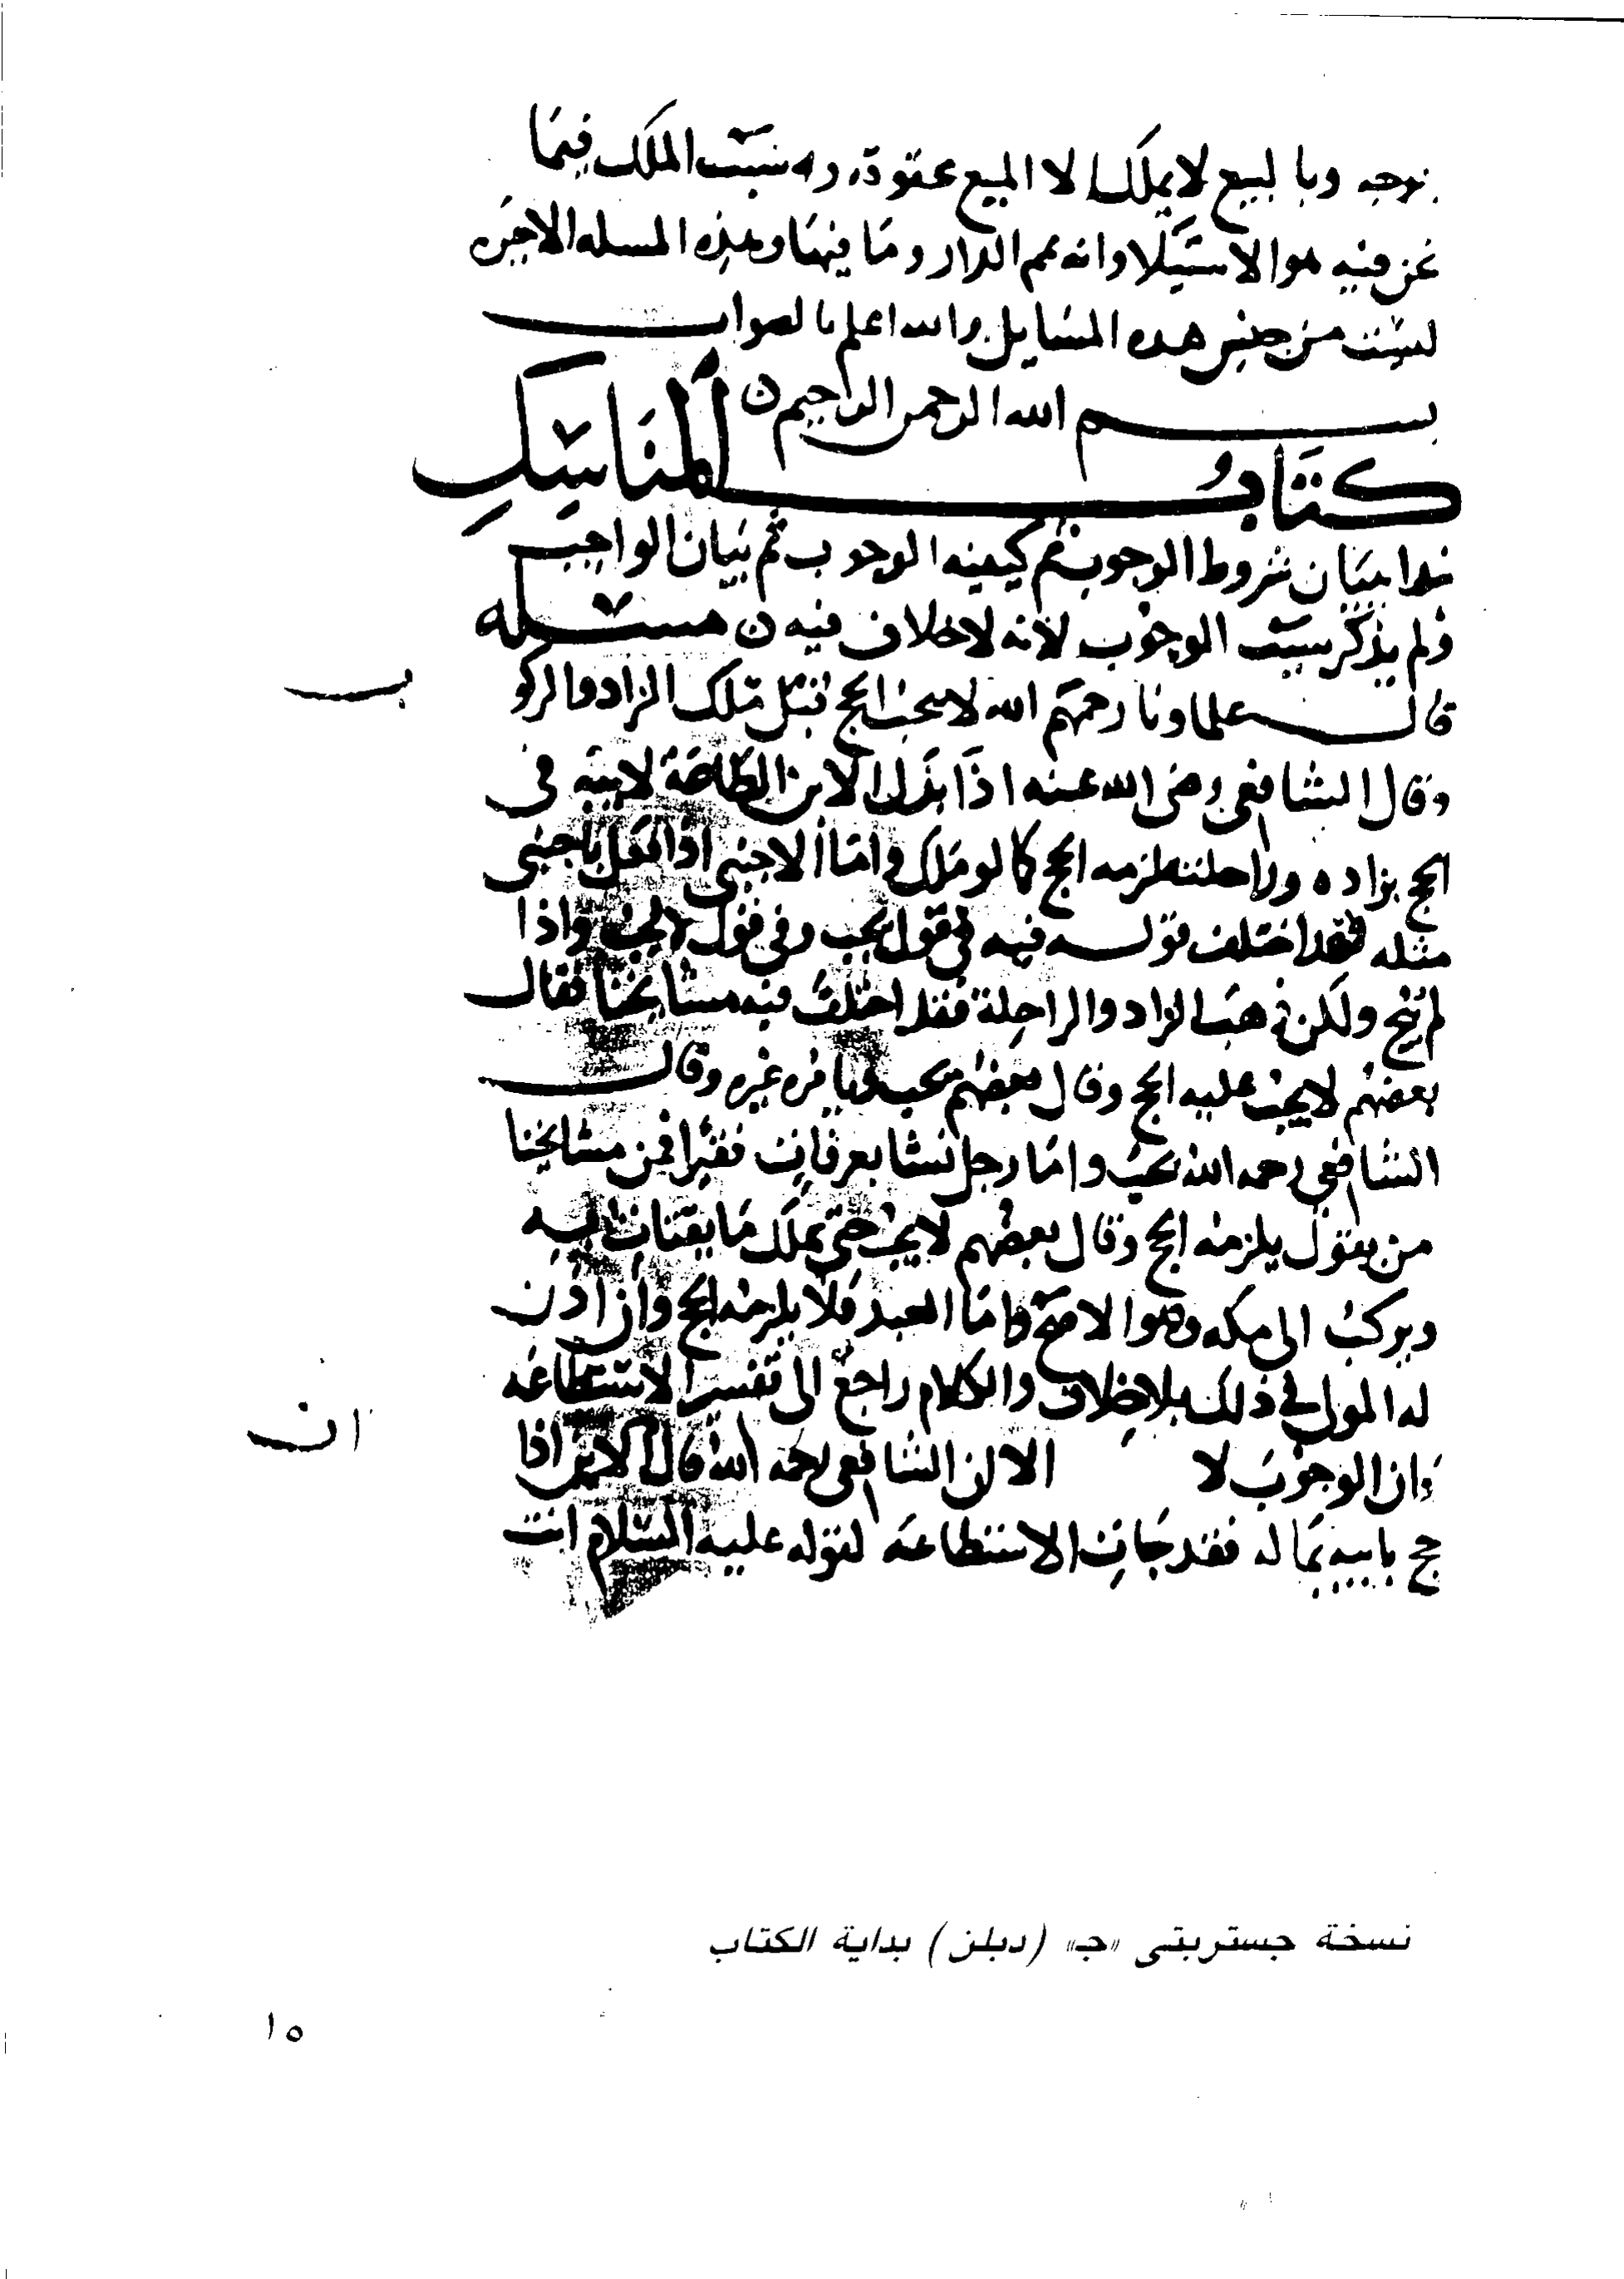 وبالبيع لا يملك الا المبيع سبب الملك فيما
نحن فيه هو الاستيلا وانه عم الدار وما فيها وهذه المسله الاخيره
ليست من جنس هذه المسايل والله اعلم بالصواب
بسم الله الرحمن الرحيم
كتاب المناسك
بدا ببيان شروط الوجوب ثم كيفيه الوجوب ثم بيان الواجب
ولم يذكر سبب الوجوب لأنه لا خلاف فيه ن مسئله
قال علماونا رحمهم الله لا يجب الحج قبل ملك الزاد والركو
ب
وقال الشافعى رضى الله عنه اذا بذل الابن الطاعة لابيه فى
الحج بزاده وراحلته لزمه الحج كما لو ملك واما الاجنبي اذا باجنبي
مثله فقد اختلف قوله فيه فى قول يجب وفى قول لا يجب واذا
لم ولكن وهب الزاد والراحلة فقد اختلف فيه مشايخنا فقال
بعضهم لا يجب عليه الحج وقال بعضهم يجب غيره وقال
الشافعي رحمه الله يجب واما رجل نشا بعرفات فقيرا فمن مشايخنا
من يقول يلزمه الحج وقال بعضهم لا يجب حتى يملك ما يقتات به
ويركب الى مكه وهو الاصح واما العبد فلا يلزمه الحج وان اذن
له المولى في ذلك بلا خلاف والكلام راجع الى تفسير الاستطاعه
وان الوجوب لا الا ان الشافعى رحمه الله قال الابن اذا
ان
حج بابيه بماله فقد جات الاستطاعه لقوله عليه السلام انت
نسخة جستربتى «جـ» (دبلن) بداية الكتاب
١٥